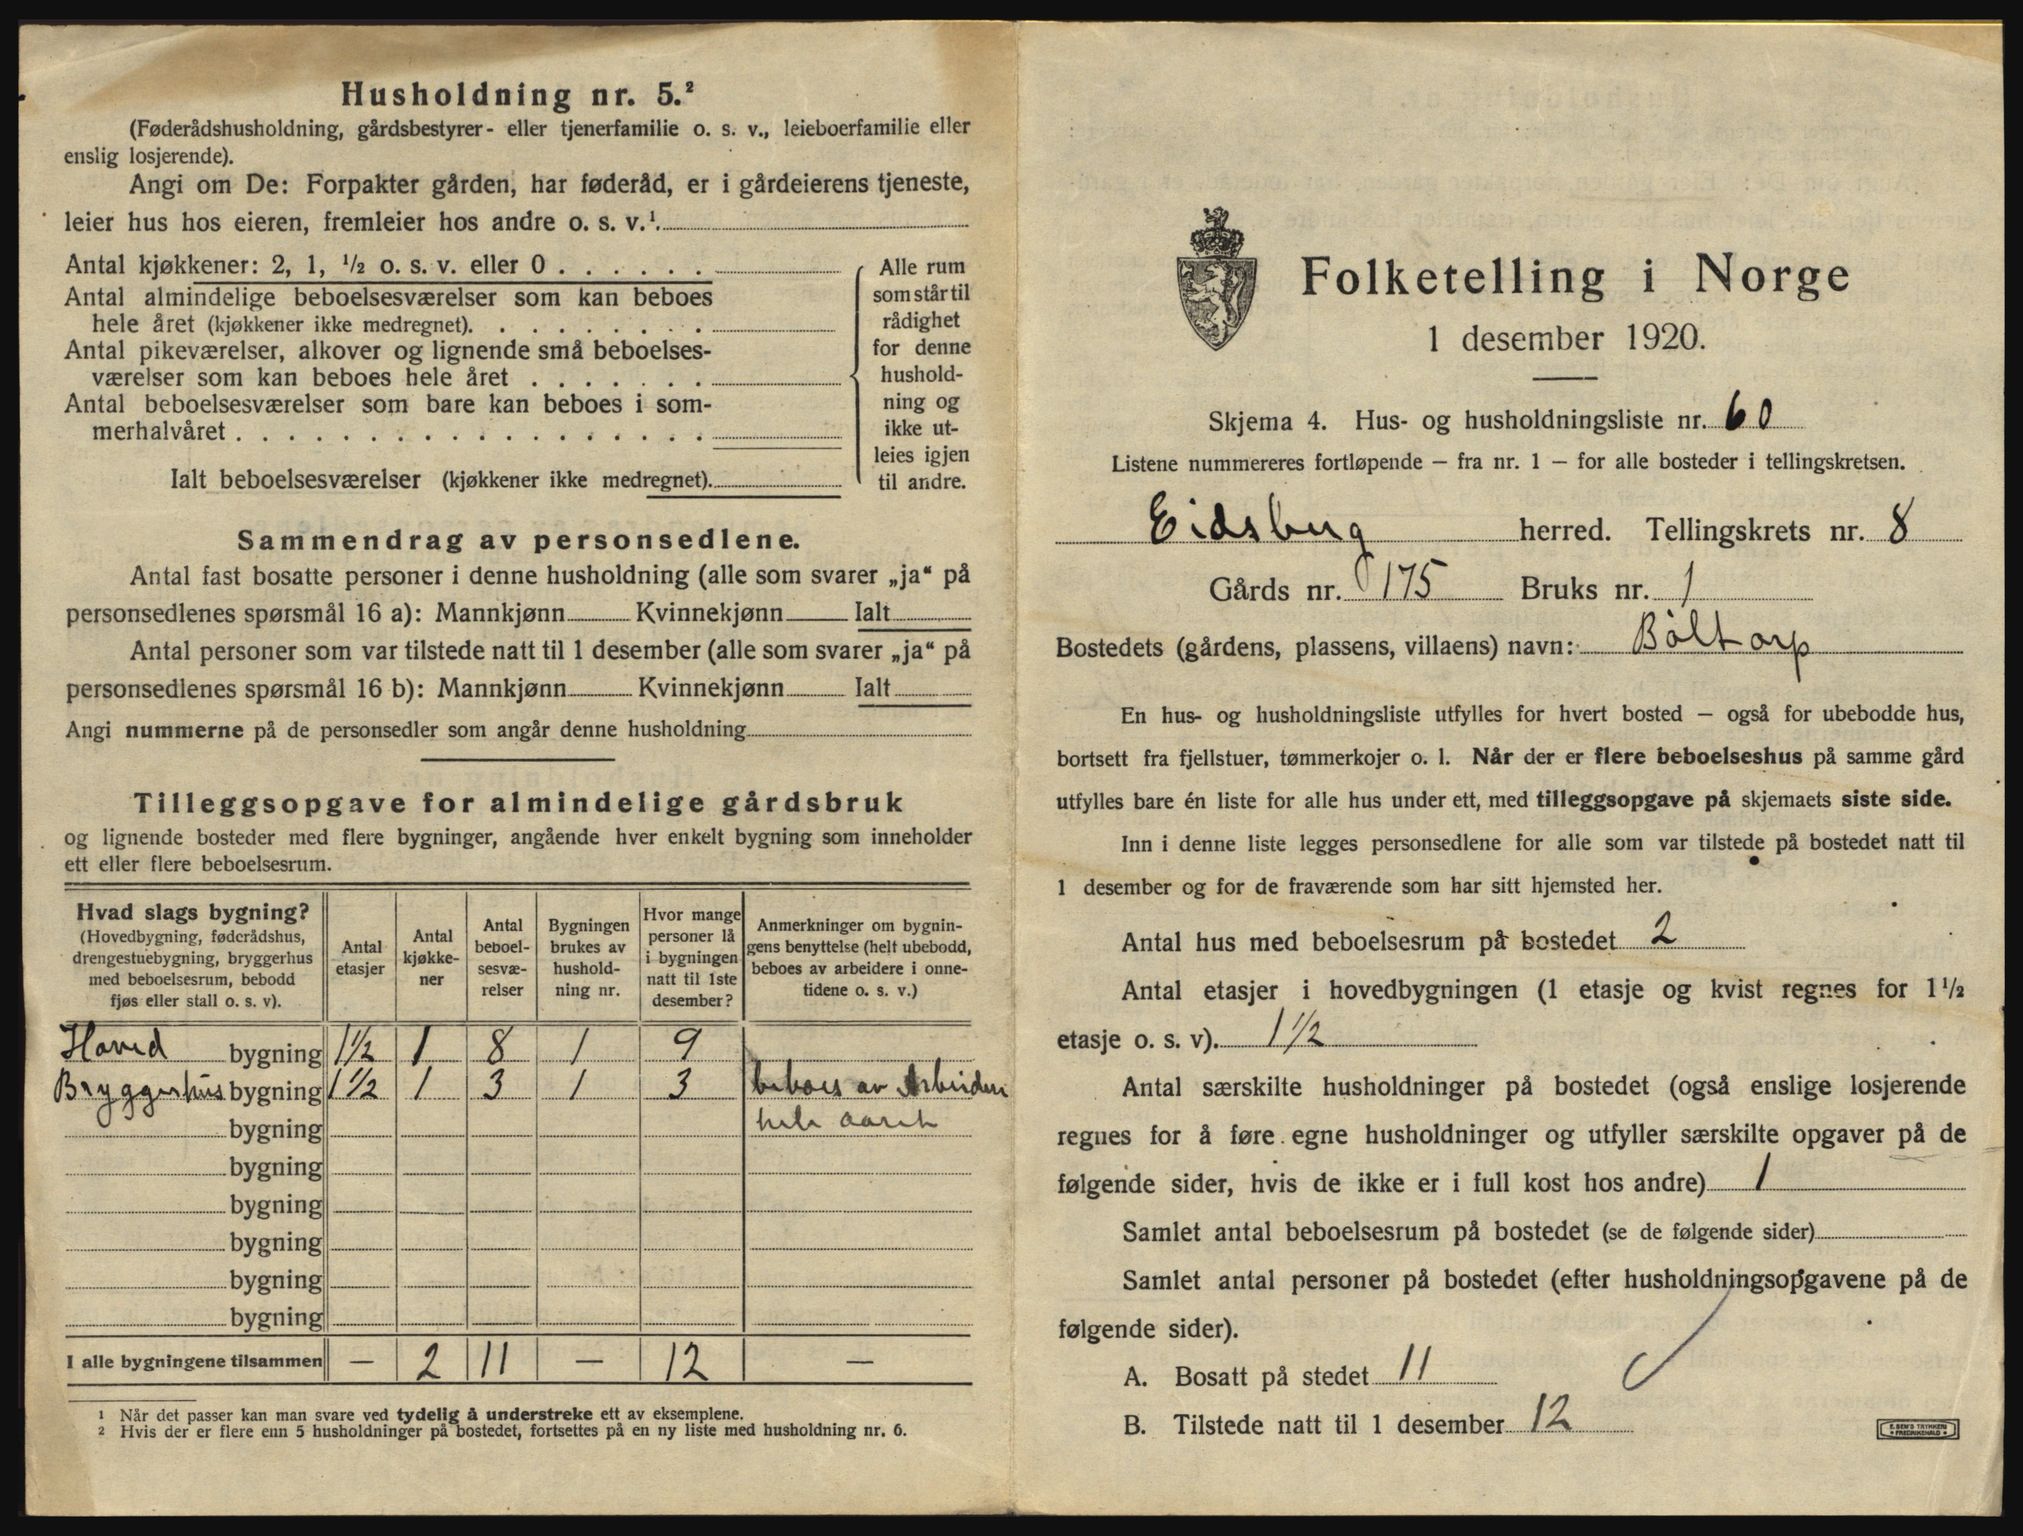 Husholdning nr. 5.²
(Føderådshusholdning, gårdsbestyrer- eller tjenerfamilie o. s. v., leieboerfamilie eller
enslig losjerende).
Angi om De: Forpakter gården, har føderåd, er i gårdeierens tjeneste,
leier hus hos eieren, fremleier hos andre o. s. v.¹.
Antal kjøkkener: 2, 1, ½ o. s. v. eller 0 . . . . . .
Antal almindelige beboelsesværelser som kan beboes
hele året (kjøkkener ikke medregnet). . . . . . . . .
Antal pikeværelser, alkover og lignende små beboelses-
værelser som kan beboes hele året . . . . . . .
Antal beboelsesværelser som bare kan beboes i som-
merhalvåret . . . . . . . . . . . . . . . . . .
Ialt beboelsesværelser (kjøkkener ikke medregnet).
Alle rum
som står til
rådighet
for denne
hushold-
ning og
ikke ut-
leies igjen
til andre.
Sammendrag av personsedlene.
Antal fast bosatte personer i denne husholdning (alle som svarer „ja“ på
personsedlenes spørsmål 16 a): Mannkjønn Kvinnekjønn Ialt
Antal personer som var tilstede natt til 1 desember (alle som svarer „ja“ på
personsedlenes spørsmål 16 b): Mannkjønn Kvinnekjønn Ialt
Angi nummerne på de personsedler som angår denne husholdning
Tilleggsopgave for almindelige gårdsbruk
og lignende bosteder med flere bygninger, angående hver enkelt bygning som inneholder
ett eller flere beboelsesrum.
Hvad slags bygning?
(Hovedbygning, føderådshus,
drengestuebygning, bryggerhus
med beboelsesrum, bebodd
fjøs eller stall o. s. v).
Antal
etasjer
Antal
kjøkke-
ner
Antal
beboel-
sesvæ-
relser
Bygningen
brukes av
hushold-
ning nr.
Hvor mange
personer lå
i bygningen
natt til 1ste
desember?
Anmerkninger om bygnin-
gens benyttelse (helt ubebodd,
beboes av arbeidere i onne-
tidene o. s. v.)
Hoved bygning 1½ 1 8 1 9
Bryggerhus bygning 1½ 1 3 1 3 beboes av Arbeider
bygning hele aaret
bygning
bygning
bygning
bygning
bygning
I alle bygningene tilsammen — 2 11 — 12 —
¹ Når det passer kan man svare ved tydelig å understreke ett av eksemplene.
² Hvis der er flere enn 5 husholdninger på bostedet, fortsettes på en ny liste med husholdning nr. 6.
Folketelling i Norge
1 desember 1920.
Skjema 4. Hus- og husholdningsliste nr. 60
Listene nummereres fortløpende – fra nr. 1 – for alle bosteder i tellingskretsen.
Eidsberg herred. Tellingskrets nr. 8
Gårds nr. 175 Bruks nr. 1
Bostedets (gårdens, plassens, villaens) navn: Böltorp
En hus- og husholdningsliste utfylles for hvert bosted – også for ubebodde hus,
bortsett fra fjellstuer, tømmerkojer o. l. Når der er flere beboelseshus på samme gård
utfylles bare én liste for alle hus under ett, med tilleggsopgave på skjemaets siste side.
Inn i denne liste legges personsedlene for alle som var tilstede på bostedet natt til
1 desember og for de fraværende som har sitt hjemsted her.
Antal hus med beboelsesrum på bostedet 2
Antal etasjer i hovedbygningen (1 etasje og kvist regnes for 1½
etasje o. s. v). 1½
Antal særskilte husholdninger på bostedet (også enslige losjerende
regnes for å føre egne husholdninger og utfyller særskilte opgaver på de
følgende sider, hvis de ikke er i full kost hos andre) 1
Samlet antal beboelsesrum på bostedet (se de følgende sider)
Samlet antal personer på bostedet (efter husholdningsopgavene på de
følgende sider).
A. Bosatt på stedet 11
B. Tilstede natt til 1 desember 12